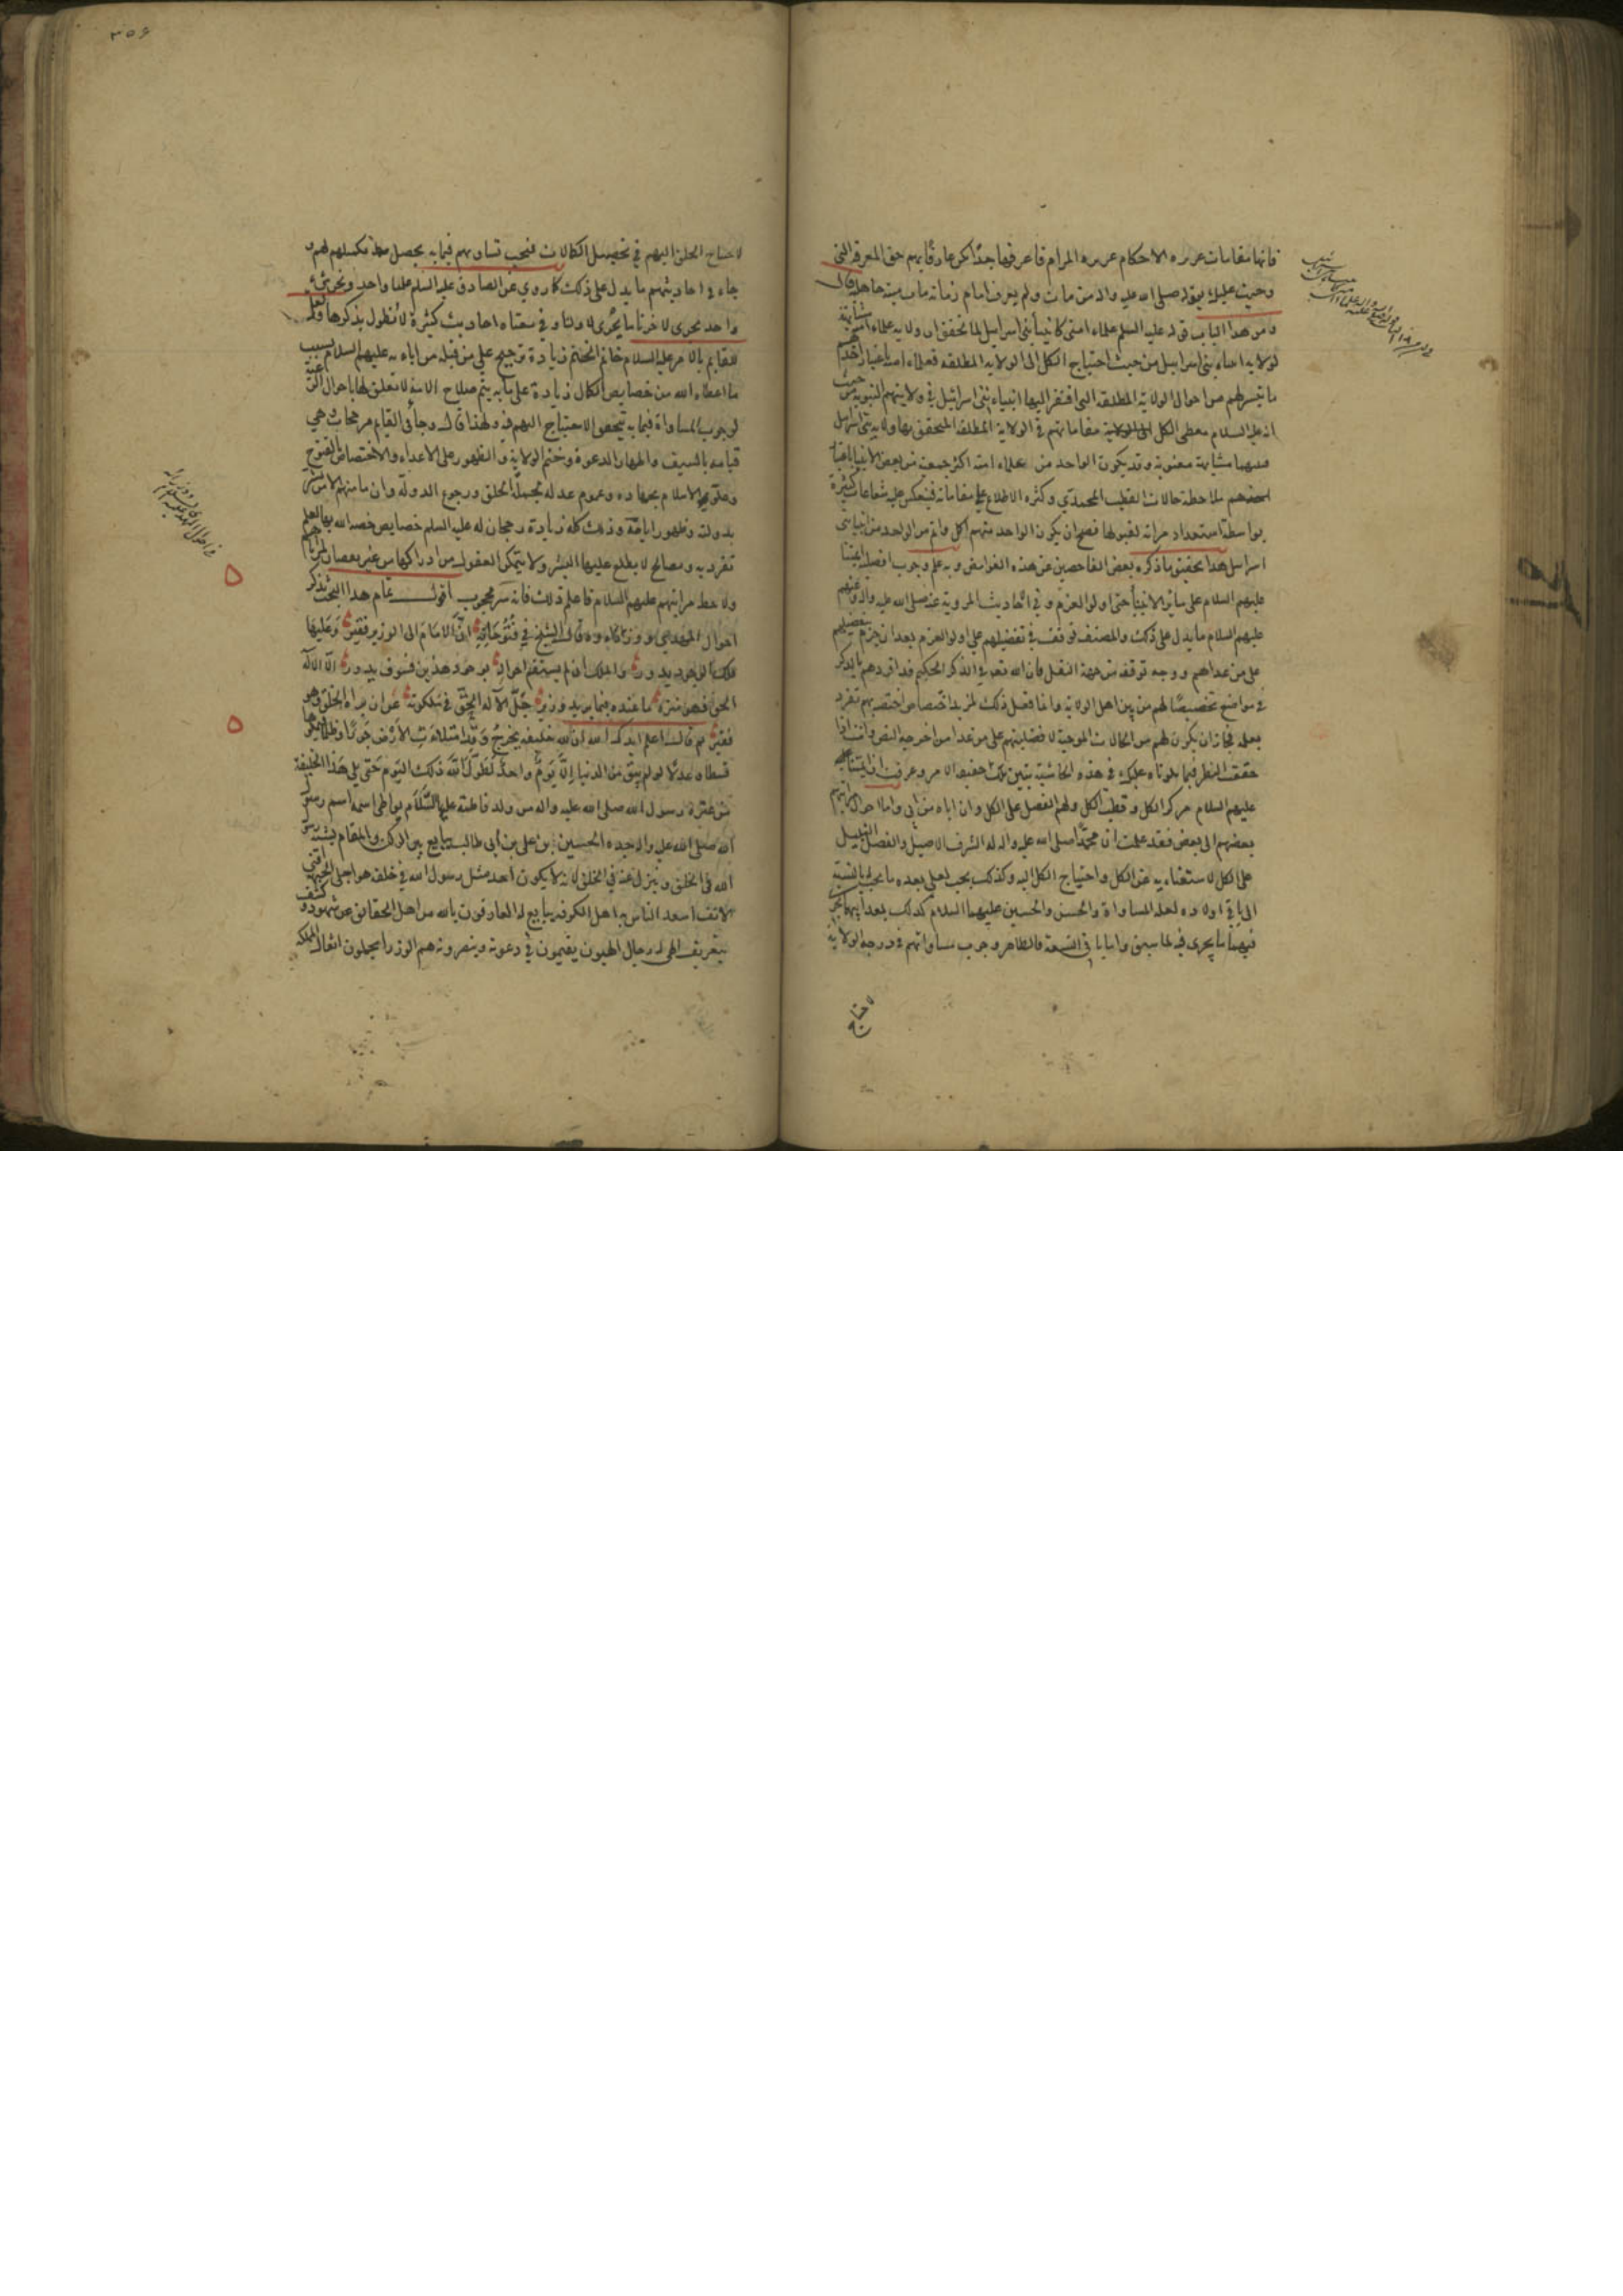 فانها مقامات عزيزه الاحكام عزيزه المرام فاعرفها جدا تكن عارفا بهم حق المعرفة التي
وجبت عليك بقوله صلى الله عليه واله من مات ولم يعرف امام زمانه مات ميتة جاهلية قال
ومن هذا الباب قوله عليه السلم علماء امتى كانبياء بنى اسرائيل لما تحقق ان ولايه علماء امته مشابهة
لولايه انبياء بنى اسرائيل من حيث احتياج الكل الى الولايه المطلقه فعلماء امته باعتبار اخذهم
ما تيسر لهم من احوال الولاية المطلقه التى افتقر اليها انبياء بنى اسرائيل في ولايتهم النبويه من حيث
انه عليه السلام معطى الكل الولاية مقاماتهم في الولاية المطلقه المتحقق بها ولايه بنى اسرائيل
فبينهما مشابهة معنوية وقد يكون الواحد من علماء امته اكثر جمعية من بعض الانبياء باعتبار
ملاحظة حالات القطب المحمدي وكثره الاطلاع على مقاماته فينعكس عليه شعاعات كثيرة
بواسطة استعداد مرآته لقبولها فصح ان يكون الواحد منهم اكمل واتم من الواحد من انبياء بنى
اسرائيل هذا تحقيق ما ذكره بعض الفاحصين عن هذه الغوامض وبه علم وجوب افضلية ائمتنا
عليهم السلام على سائر الانبياء حتى اولوا العزم وفي احاديثنا المروية عنه صلى الله عليه واله وعنهم
عليهم السلام ما يدل على ذلك والمصنف توقف في تفضيلهم على اولو العزم بعد ان جزم بتفضيلهم
على من عداهم ووجه توقفه من جهة النقل فان الله تعالى في الذكر الحكيم قد افردهم بالذكر
في مواضع تخصيصا لهم من بين اهل الولاية وانما فعل ذلك لمزيد اختصاص اختصهم به تفرد
بعلمه فجاز ان يكون لهم من الكمالات الموجبة لافضليتهم على من عدا من اخرجه النص وانت اذا
حققت النظر فيما تلوناه عليك في هذه الحاشية تبين لك حقيقة الامر وعرفت ان ائمتنا
عليهم السلام مركز الكل وقطب الكل ولهم الفضل على الكل وان اباه من ابى واما احوال ائمتهم
بعضهم الى بعض فقد علمت ان محمدا صلى الله عليه واله له الشرف الاصيل والفضل النبيل
على الكل لاستغنايه عن الكل واحتياج الكل اليه وكذلك يجب لعلي بعده ما يجب بالنسبة
الى باقي اولاده لعلة المساواة والحسن والحسين عليهما السلام كذلك بعد ابيهما يجب
فيهما ما يجرى فيه لما سبق واما باقى التسعة فالظاهر وجوب مساواتهم في درجة الولاية
لاحتياج
٣٥٤
لاحتياج الخلق اليهم في تحصيل الكمالات فيجب تساويهم فيما به يحصل تكميلهم لهم و
جاء في احاديثهم ما يدل على ذلك كما روي عن الصادق عليه السلم علمنا واحد ونحن شيء
واحد يجرى لاخرنا ما يجرى لاولنا وفي معناه احاديث كثيرة لا نطول بذكرها ولعل
للقايم بالامر عليه السلام خاتم الختم زيادة ترجيح على من قبله من ابايه عليهم السلام بسبب
ما اعطاه الله من خصايص الكمال زيادة على ما به يتم صلاح الامة لا تتعلق لها باحوال
لوجوب المساواة فيما به تيحقق الاحتياج اليهم فيه ولهذا قال وجاء في القايم مرجحات وهي
قيامه بالسيف واظهار الدعوة وختم الولاية والظهور على الاعداء والاختصاص بالفتوح
الاسلام بجهاده وعموم عدله لجملة الخلق ورجوع الدولة وان ما منهم الا من بشر
بدولته وظهور ايامه وذلك كله زيادة رجحان له عليه السلم خصايص خصه الله بها لعلم
تفرد به ومصالح لا يطلع عليها البشر ولا تتمكن العقول من ادراكها من غير نقصان لمزاياهم
ولا حط مراتبهم عليهم السلام فاعلم ذلك فانه سر محجوب اقول تمام هذا البحث بذكر
احوال المهدي ووزرائه وقال الشيخ في فتوحاته ان الامام الى الوزير فقير وعليهما
فلك الوجود يدور والملك ان لم يستقم احواله بوجود هذين فسوف يبور الا الاله
الحق فهو منزه ما عنده فيما يريد وزير جل الاله الحق في ملكوته عن ان يراه الخلق وهو
فقير ثم قال اعلم ايدك الله ان لله خليفه يخرج وقد امتلأت الارض جورا وظلما فيملأها
قسطا وعدلا لو لم يبق من الدنيا الا يوم واحد لطول الله ذلك اليوم حتى يلي هذا الخليفة
من عترة رسول الله صلى الله عليه واله من ولد فاطمة عليها السلام يواطئ اسمه اسم رسول
الله صلى الله عليه واله جده الحسين بن علي بن أبي طالب يبايع بين الركن والمقام يشبه رسول
الله في الخلق وينزل عنه في الخلق لانه لا يكون احد مثل رسول الله في خلقه هو اجلى الجبهة اقنى
الانف اسعد الناس به اهل الكوفه يبايع له العارفون بالله من اهل الحقائق عن شهود وكشف
بتعريف الهي له رجال الهيون يقيمون في دعوته وينصرونه هم الوزراء يحملون اثقال المملكه